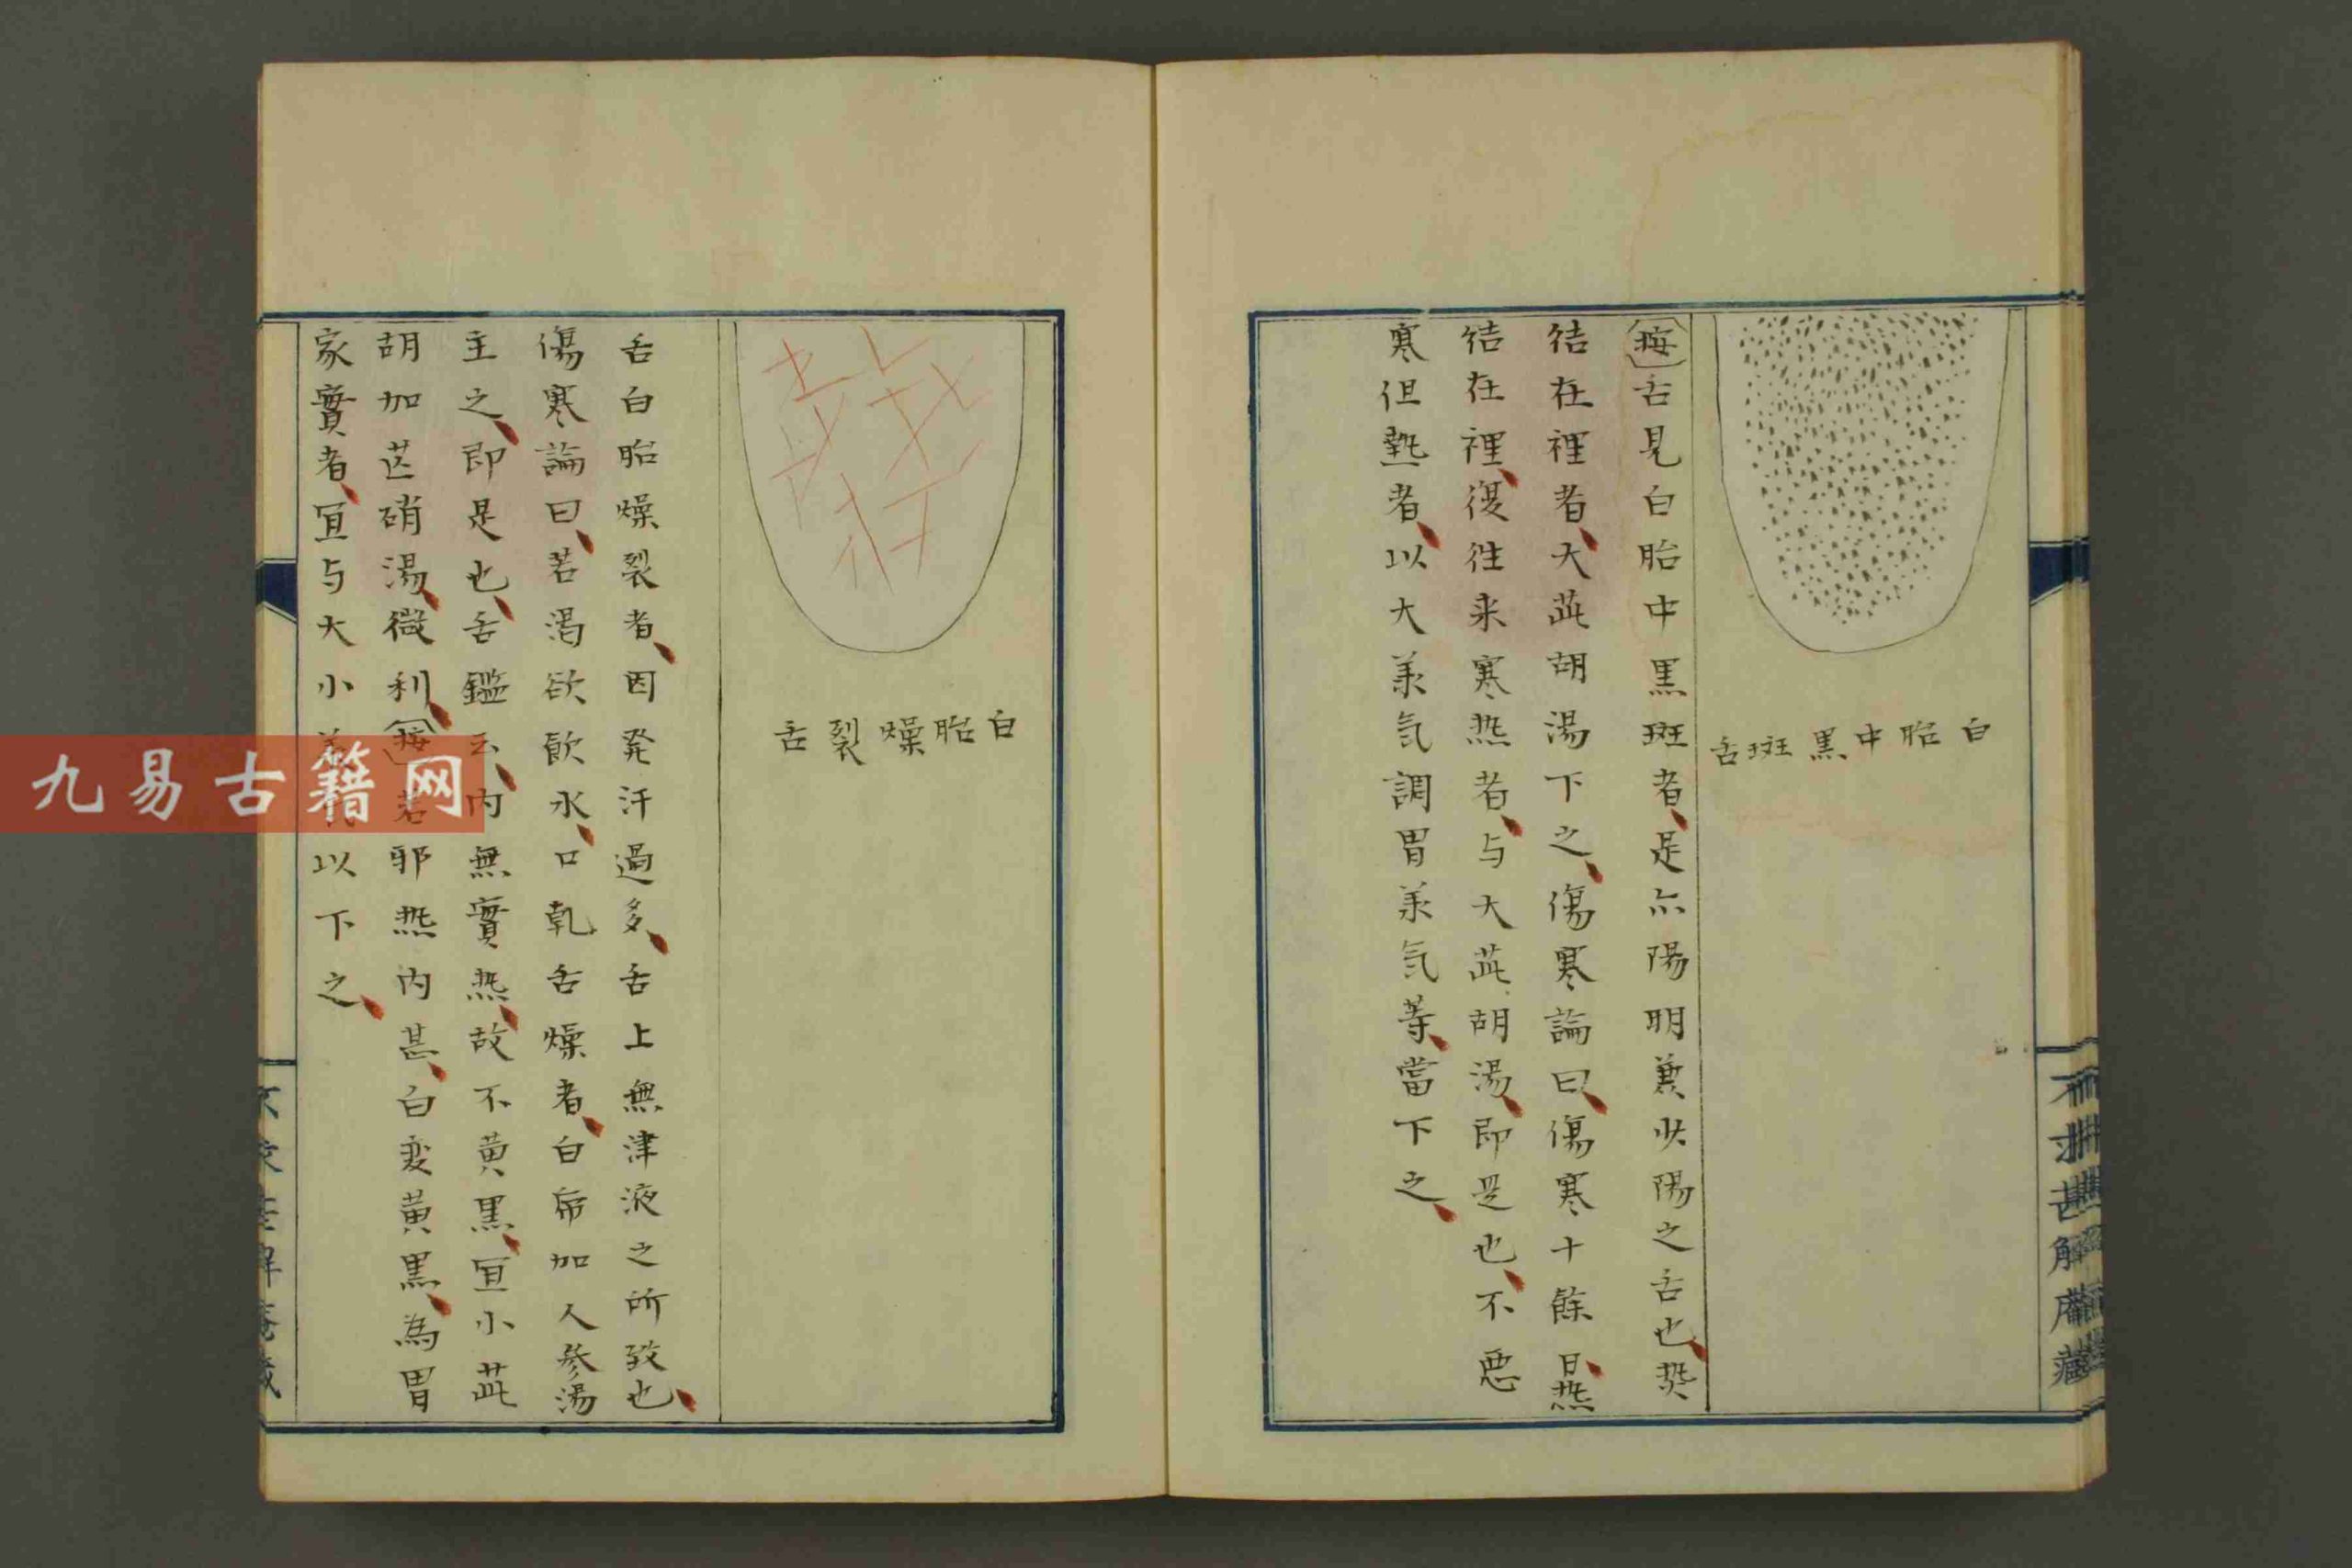 白胎中黒斑舌
按舌見白胎中黒斑者是亦陽明兼少陽之舌也熱
结在裡者大茈胡湯下之傷寒論曰傷寒十餘日热
结在裡復往来寒热者与大茈胡湯即是也不悪
寒但熱者以大承氣調胃承氣等當下之
不求甚解庵藏
白胎燥裂舌
舌白胎燥裂者因発汗過多舌上無津液之所致也
傷寒論曰若渇欲飲水口乾舌燥者白帍加人参湯
主之即是也舌鑑云内無實热故不黄黒冝小茈
胡加芒硝湯微利按若邪热内甚白变黄黒為胃
家實者冝与大小以下之
九易古籍网